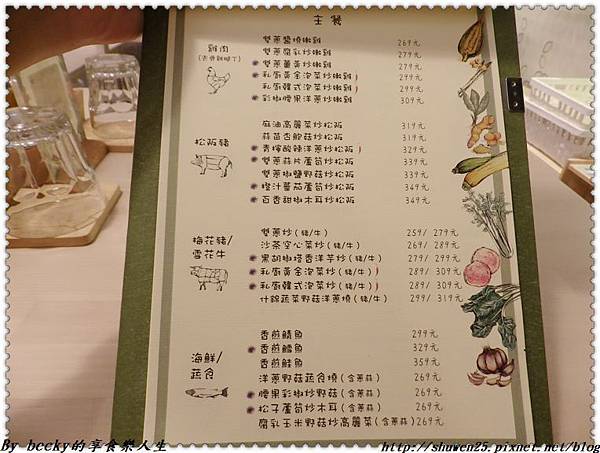 主餐
雞肉
(去骨雞腿丁)
雙蔥醬燒嫩雞 269元
雙蔥腐乳炒嫩雞 279元
雙蔥薑黃炒嫩雞 279元
私廚黃金泡菜炒嫩雞 299元
私廚韓式泡菜炒嫩雞 299元
彩椒腰果洋蔥炒嫩雞 309元
松阪豬
麻油高麗菜炒松阪 319元
蒜苗杏鮑菇炒松阪 319元
青檸酸辣洋蔥炒松阪 329元
雙蔥蒜片蘆筍炒松阪 339元
雙蔥椒鹽野菇炒松阪 339元
橙汁蕃茄蘆筍炒松阪 349元
百香甜椒木耳炒松阪 349元
梅花豬/
雪花牛
雙蔥炒(豬/牛) 259/ 279元
沙茶空心菜炒(豬/牛) 269/ 289元
黑胡椒塔香洋芋炒(豬/牛) 279/ 299元
私廚黃金泡菜炒(豬/牛) 289/ 309元
私廚韓式泡菜炒(豬/牛) 289/ 309元
什錦蔬菜野菇洋蔥燒(豬/牛) 299/ 319元
海鮮/
蔬食
香煎鯖魚 299元
香煎鱸魚 329元
香煎鮭魚 359元
洋蔥野菇蔬食燒(含蔥蒜) 269元
腰果彩椒炒野菇(含蔥蒜) 269元
松子蘆筍炒木耳(含蔥蒜) 269元
腐乳玉米野菇炒高麗菜(含蔥蒜) 269元
By becky的享食樂人生
http://shuwen25.pixnet.net/blog